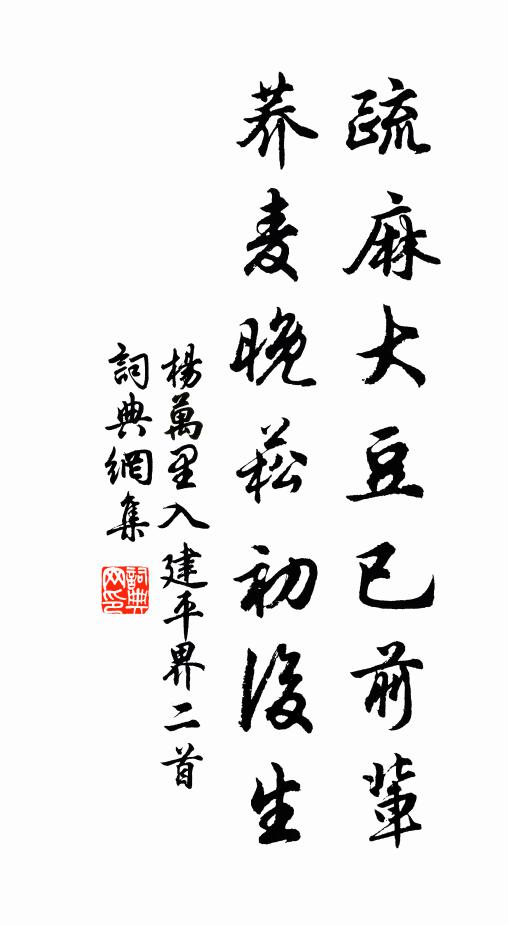 疏麻大豆已前輩
荞麦晚菘初後生
楊萬里入建平界二首
詞典網集
詞典网印